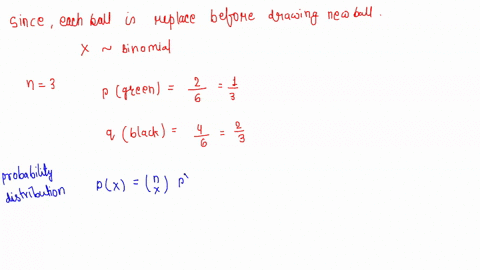 Since, each ball is replace before drawing new ball.
X ~ Binomial
n = 3
p (green) = 2/6 = 1/3
q (black) = 4/6 = 2/3
probability
distribution p(x) = (n x) p